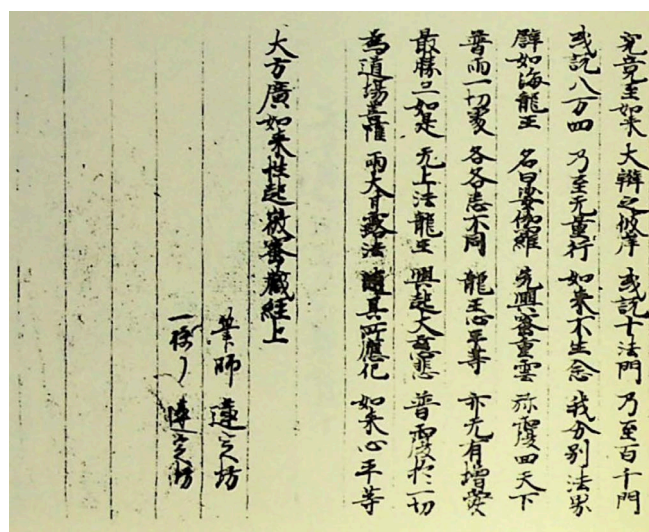 究竟至如来 大辯之彼岸 或説十法門 乃至百千門
或説八万四 乃至无量行 如来不生念 我分別法界
譬如海龍王 名曰娑伽羅 先興密重雲 弥覆四天下
普雨一切處 各各悉不同 龍王心平等 亦无有増愛
最勝亦如是 无上法龍王 興起大慈悲 普覆於一切
為道場菩薩 雨大甘露法 随其所應化 如来心平等
大方廣如来性起微密藏經上
筆師 蓮定坊
一挍了 蓮定坊